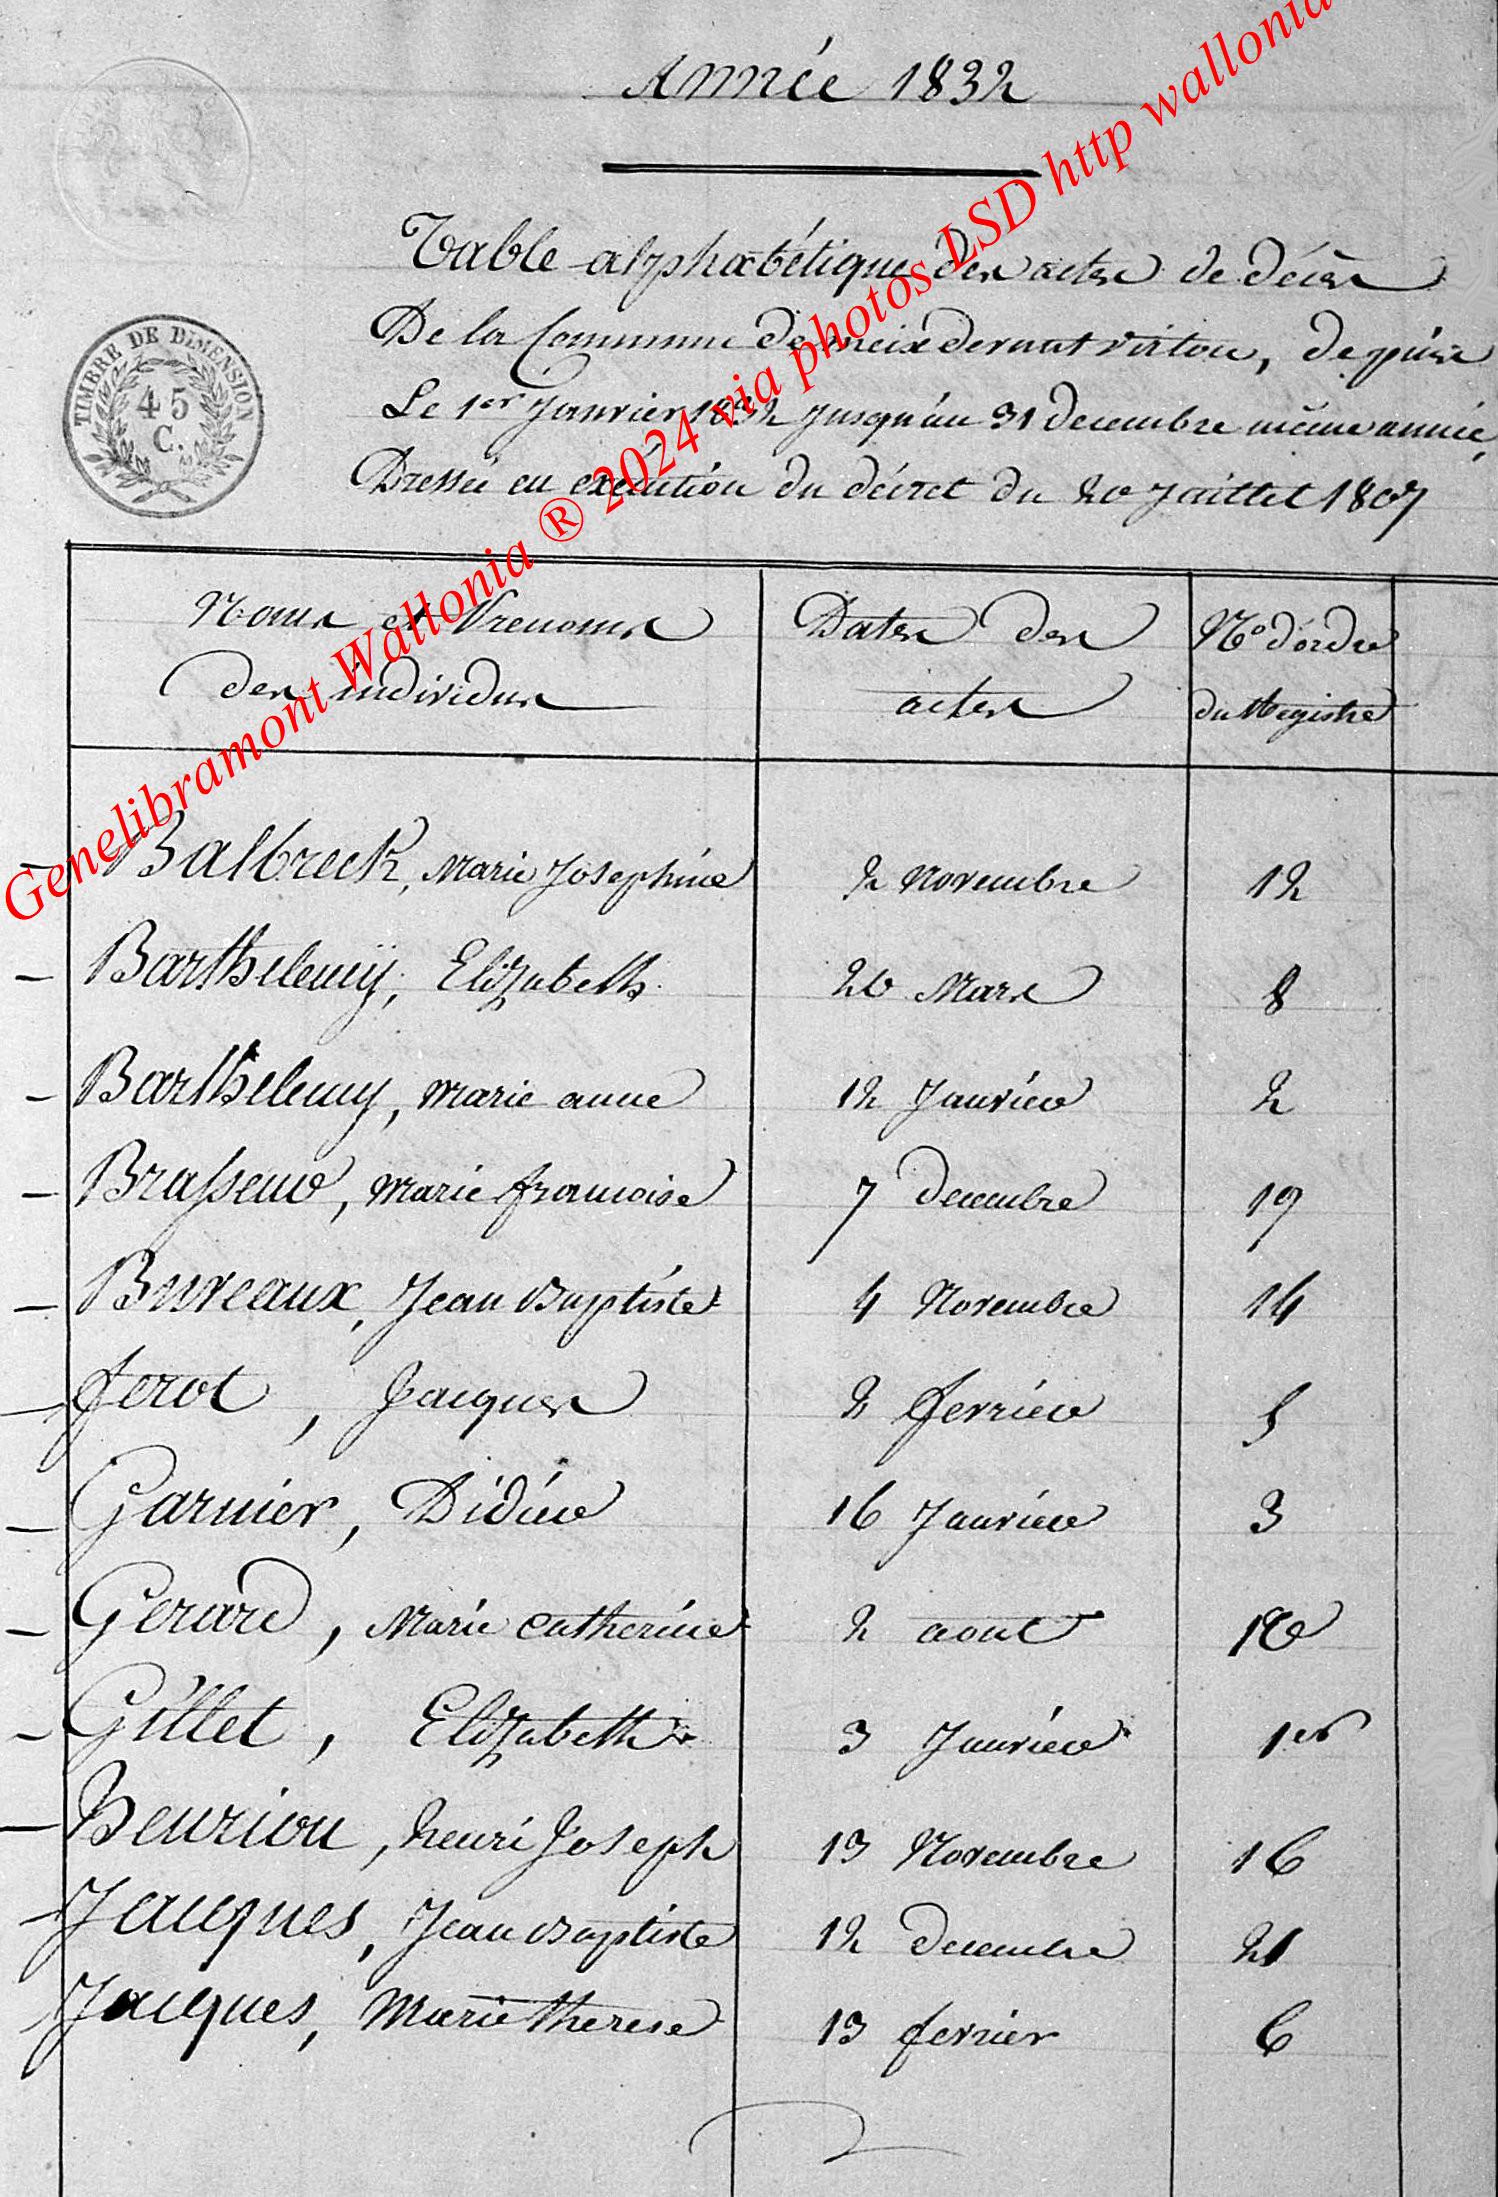 Année 1832
Table alphabétique des actes de décès
De la Commune de meix devant virton, depuis
Le 1er Janvier 1832 Jusqu'au 31 decembre même année,
Dressée en exécution du décret du 20 Juillet 1807
TIMBRE DE DIMENSION
45
C.
Noms et Prenoms
des individus
Dates des
actes
No d'ordre
du Registre
Balbreck, Marie Josephine 2 Novembre 12
Barthelemÿ, Elizabeth 20 Mars 8
Barthelemy, Marie anne 12 Janvier 2
Brasseur, Marie francoise 7 decembre 19
Bureaux, Jean Baptiste 4 Novembre 14
ferot, Jacques 2 fevrier 5
Garnier, Didier 16 Janvier 3
Gerard, Marie Catherine 2 aout 10
Gillet, Elizabeth 3 Janvier 1er
henrion, henri Joseph 13 Novembre 16
Jacques, Jean Baptiste 12 decembre 21
Jacques, Marie therese 13 fevrier 6
Genelibramont Wallonia ® 2024 via photos LSD http wallonia